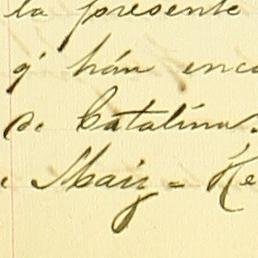 la presente
q' hán enco
de Catalina.
Maiz = Re